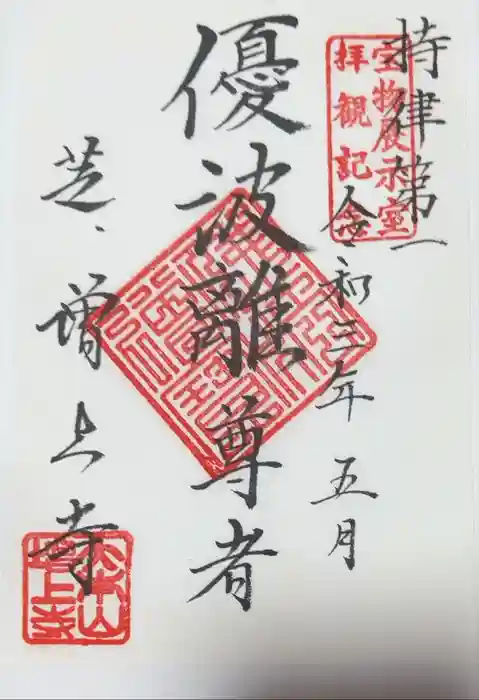 持律第一
宝物展示室
拝観記念
令和三年五月
優波離尊者
芝、増上寺
大本山
増上寺